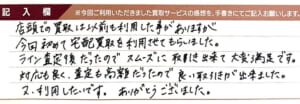 記入欄 ※今回ご利用いただきました買取サービスの感想を、手書きにてご記入お願いします。
店頭での買取は以前も利用した事がありますが
今回初めて宅配買取を利用させてもらいました。
ライン査定後だったのでスムーズに取引き出来て大変満足です。
対応も良く、査定も高額だったので良い取引きが出来ました。
又、利用したいです。ありがとうございました。